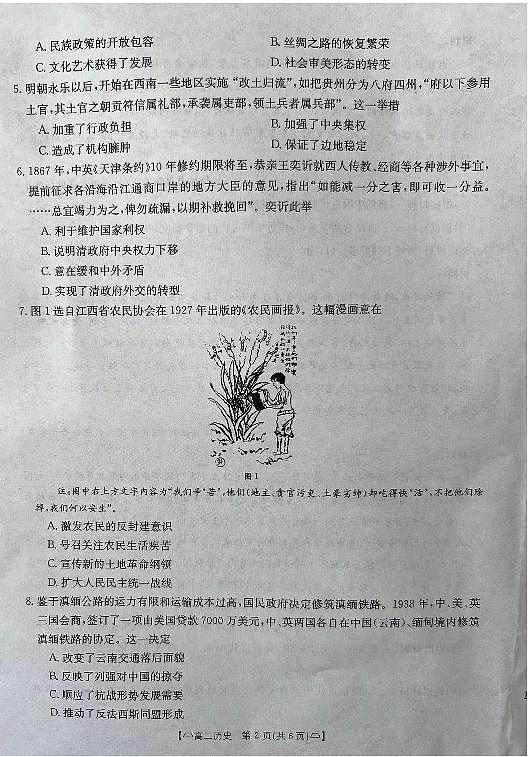 A. 民族政策的开放包容 B. 丝绸之路的恢复繁荣
C. 文化艺术获得了发展 D. 社会审美形态的转变
5. 明朝永乐以后,开始在西南一些地区实施“改土归流”,如把贵州分为八府四州,“府以下参用
土官,其土官之朝贡符信属礼部,承袭属吏部,领土兵者属兵部”。这一举措
A. 加重了行政负担 B. 加强了中央集权
C. 造成了机构臃肿 D. 保证了边地稳定
6. 1867 年,中英《天津条约》10 年修约期限将至,恭亲王奕䜣就西人传教、经商等各种涉外事宜,
提前征求各沿海沿江通商口岸的地方大臣的意见,指出“如能减一分之害,即可收一分益。
……总宜竭力为之,俾勿疏漏,以期补救挽回”。奕䜣此举
A. 利于维护国家利权
B. 说明清政府中央权力下移
C. 意在缓和中外矛盾
D. 实现了清政府外交的转型
7. 图 1 选自江西省农民协会在 1927 年出版的《农民画报》。这幅漫画意在
图 1
注:图中右上方文字内容为“我们学‘苦’,他们(地主、贪官污吏、土豪劣绅)却吃得快‘活’,不把他们除
掉,我们何以安生”。
A. 激发农民的反封建意识
B. 号召关注农民生活疾苦
C. 宣传新的土地革命纲领
D. 扩大人民民主统一战线
8. 鉴于滇缅公路的运力有限和运输成本过高,国民政府决定修筑滇缅铁路。1938 年,中、美、英
三国会商,签订了一项由美国贷款 7000 万美元,中、英两国各自在中国(云南)、缅甸境内修筑
滇缅铁路的协定。这一决定
A. 改变了云南交通落后面貌
B. 反映了列强对中国的掠夺
C. 顺应了抗战形势发展需要
D. 推动了反法西斯同盟形成
高二历史 第 2 页(共 6 页)